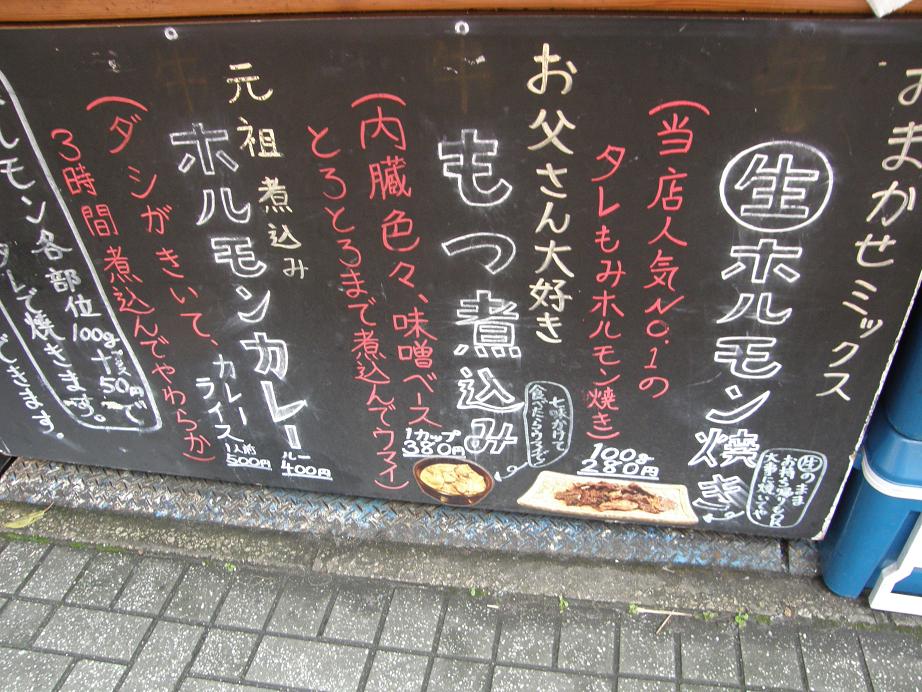 おまかせミックス
生ホルモン焼き
生のまま
お持ち帰りもOK
(当店人気NO.1の
タレもみホルモン焼き)
100g
280円
お父さん大好き
もつ煮込み
七味かけて
食べたらウマイデス
(内臓色々、味噌ベース
とろとろまで煮込んでウマイ)
1カップ
380円
元祖煮込み
ホルモンカレー
ルー
400円
カレー
ライス
1人前
500円
(ダシがきいて、
3時間煮込んでやわらか)
ルモン各部位
100g
プラス50円で
タレで焼きます。
できます。